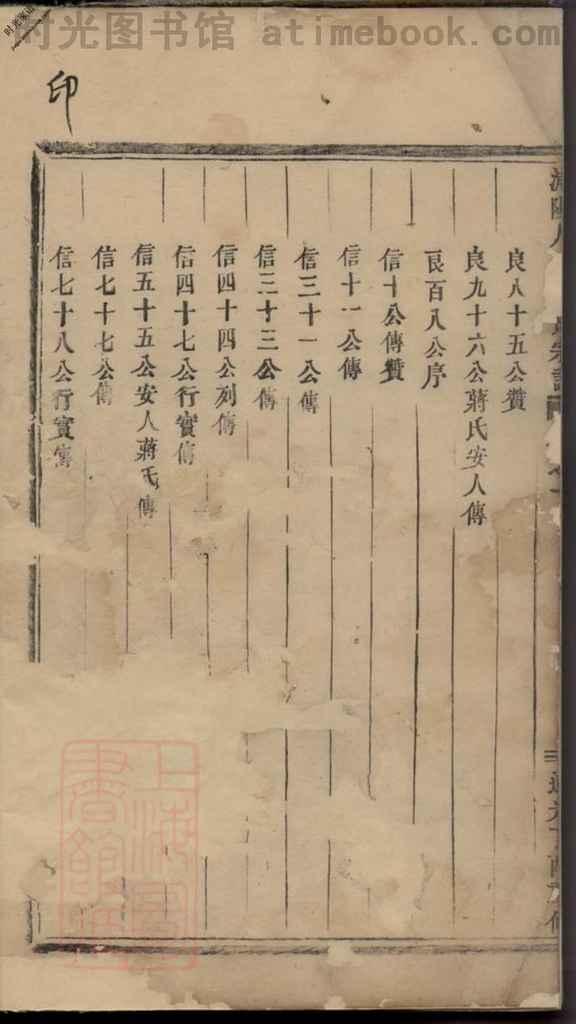 时光图书馆 atimebook.com
时光家谱
印
良八十五公贊
良九十六公蔣氏安人傳
良百八公序
信十公傳贊
信十一公傳
信三十一公傳
信三十三公傳
信四十四公列傳
信四十七公行實傳
信五十五公安人蔣氏傳
信七十七公傳
信七十八公行實傳
宗譜
上海圖書館藏